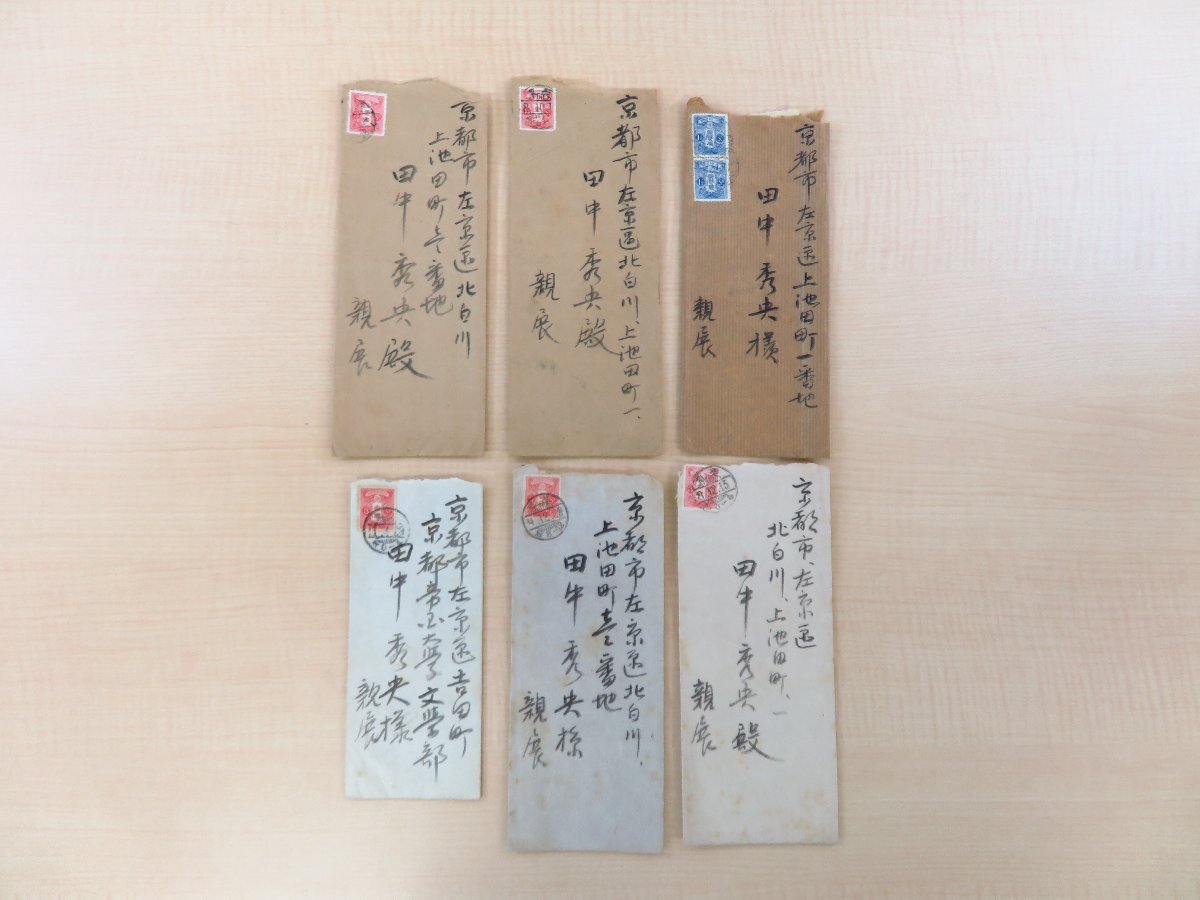 京都市左京區北白川
上池田町壱番地
田中秀央殿
親展
京都市左京區北白川、上池田町一、
田中秀央殿
親展
京都市左京區上池田町一番地
田中秀央様
親展
京都市左京區吉田町
京都帝国大学文学部
田中秀央様
親展
京都市左京區北白川、
上池田町壱番地
田中秀央様
親展
京都市、左京區
北白川、上池田町、一
田中秀央殿
親展